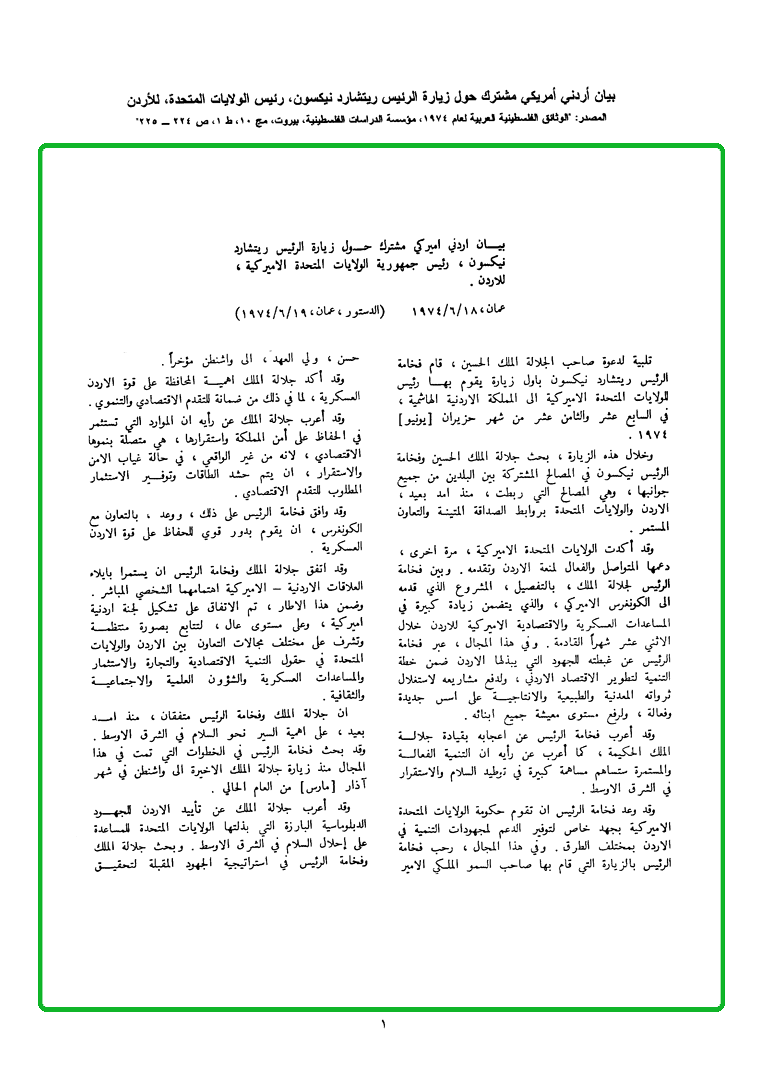 بيان أردني أمريكي مشترك حول زيارة الرئيس ريتشارد نيكسون، رئيس الولايات المتحدة، للأردن
المصدر: "الوثائق الفلسطينية العربية لعام ١٩٧٤، مؤسسة الدراسات الفلسطينية، بيروت، مج ١٠، ط ١، ص ٢٢٤ ــ ٢٢٥"
بيـــان اردني اميركي مشترك حـــول زيارة الرئيس ريتشارد
نيكسون ، رئيس جمهورية الولايات المتحدة الاميركية ،
للاردن .
عمان، ١٩٧٤/٦/١٨ (الدستور، عمان، ١٩٧٤/٦/١٩)
تلبية لدعوة صاحب الجلالة الملك الحسين ، قام فخامة
الرئيس ريتشارد نيكسون باول زيارة يقوم بهـا رئيس
للولايات المتحدة الاميركية الى المملكة الاردنية الهاشمية ،
في السابع عشر والثامن عشر من شهر حزيران [يونيو]
١٩٧٤ .
وخلال هذه الزيارة ، بحث جلالة الملك الحسين وفخامة
الرئيس نيكسون في المصالح المشتركة بين البلدين من جميع
جوانبها ، وهي المصالح التي ربطت ، منذ امد بعيد ،
الاردن والولايات المتحدة بروابط الصداقة المتينـة والتعاون
المستمر .
وقد أكدت الولايات المتحدة الاميركية ، مرة اخرى ،
دعمها المتواصل والفعال لمنعة الاردن وتقدمه . وبين فخامة
الرئيس لجلالة الملك ، بالتفصيل ، المشروع الذي قدمه
الى الكونغرس الاميركي ، والذي يتضمن زيادة كبيرة في
المساعدات العسكرية والاقتصادية الاميركية للاردن خلال
الاثني عشر شهراً القادمة . وفي هذا المجال ، عبر فخامة
الرئيس عن غبطته للجهود التي يبذلها الاردن ضمن خطة
التنمية لتطوير الاقتصاد الاردني ، ولدفع مشاريعه لاستغلال
ثرواته المعدنية والطبيعية والانتاجيـــة على اسس جديدة
وفعالة ، ولرفع مستوى معيشة جميع ابنائه .
وقد أعرب فخامة الرئيس عن اعجابه بقيادة جلالـــة
الملك الحكيمة ، كما أعرب عن رأيه ان التنمية الفعالـــة
والمستمرة ستساهم مساهمة كبيرة في ترطيد السلام والاستقرار
في الشرق الاوسط .
وقد وعد فخامة الرئيس ان تقوم حكومة الولايات المتحدة
الاميركية بجهد خاص لتوفير الدعم لمجهودات التنمية في
الاردن بمختلف الطرق . وفي هذا المجال ، رحب فخامة
الرئيس بالزيارة التي قام بها صاحب السمو الملكي الامير
حسن ، ولي العهد ، الى واشنطن مؤخراً .
وقد أكد جلالة الملك اهميـة المحافظة على قوة الاردن
العسكرية ، لما في ذلك من ضمانة للتقدم الاقتصادي والتنموي .
وقد أعرب جلالة الملك عن رأيه ان الموارد التي تستثمر
في الحفاظ على أمن المملكة واستقرارها ، هي متصلة بنموها
الاقتصادي ، لانه من غير الواقعي ، في حالة غياب الامن
والاستقرار ، ان يتم حشد الطاقات وتوفــير الاستثمار
المطلوب للتقدم الاقتصادي .
وقد وافق فخامة الرئيس على ذلك ، ووعد ، بالتعاون مع
الكونغرس ، ان يقوم بدور قوي للحفاظ على قوة الاردن
العسكرية .
وقد اتفق جلالة الملك وفخامة الرئيس ان يستمرا بايلاء
العلاقات الاردنية – الاميركية اهتمامهما الشخصي المباشر .
وضمن هذا الاطار ، تم الاتفاق على تشكيل لجنة اردنية
اميركية ، وعلى مستوى عال ، لتتابع بصورة منتظمـــة
وتشرف على مختلف مجالات التعاون بين الاردن والولايات
المتحدة في حقول التنمية الاقتصادية والتجارة والاستثمار
والمساعدات العسكرية والشؤون العلمية والاجتماعيـــة
والثقافية .
ان جلالة الملك وفخامة الرئيس متفقان ، منذ امـــد
بعيد ، على اهمية السير نحو السلام في الشرق الاوسط .
وقد بحث فخامة الرئيس في الخطوات التي تمت في هذا
المجال منذ زيارة جلالة الملك الاخيرة الى واشنطن في شهر
آذار [مارس] من العام الحالي .
وقد أعرب جلالة الملك عن تأييد الاردن للجهـــود
الدبلوماسية البارزة التي بذلتها الولايات المتحدة للمساعدة
على إحلال السلام في الشرق الاوسط . وبحث جلالة الملك
وفخامة الرئيس في استراتيجية الجهود المقبلة لتحقيـــق
١